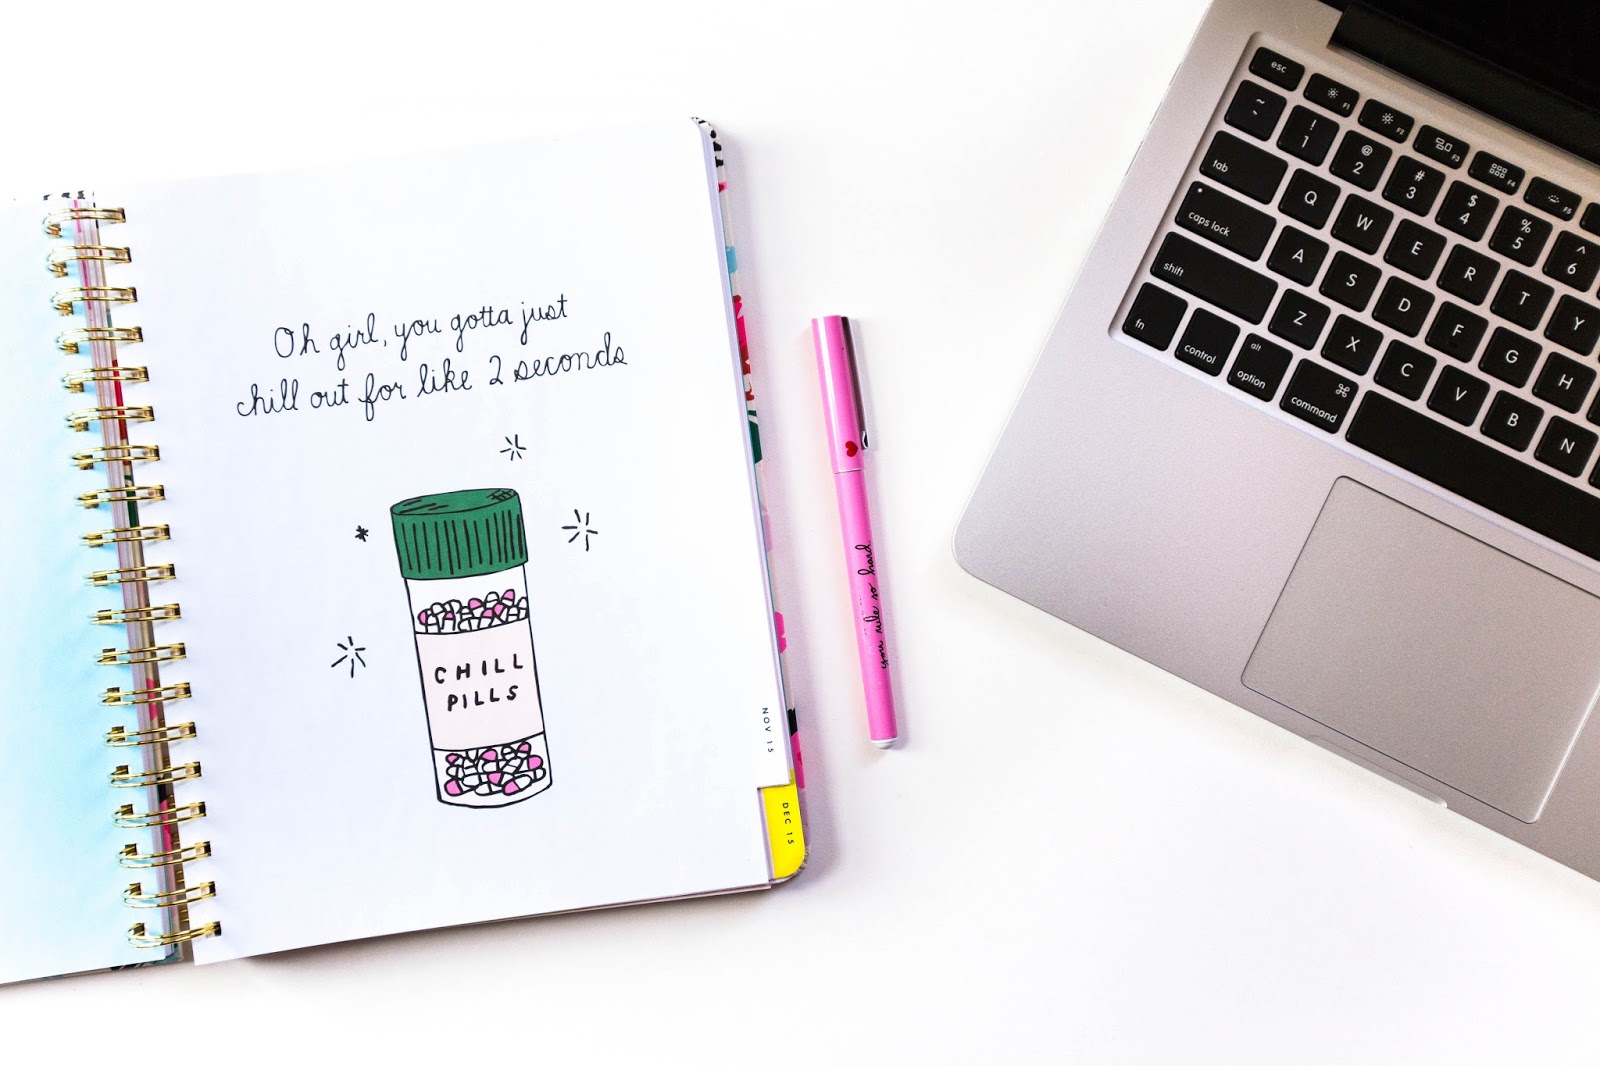 Oh girl, you gotta just
chill out for like 2 seconds
CHILL
PILLS
NOV 15
DEC 15
you rule so hard
esc
F1
F2
F3
F4
F5
~ `
! 1
@ 2
# 3
$ 4
% 5
^ 6
tab
Q
W
E
R
T
Y
caps lock
A
S
D
F
G
H
shift
Z
X
C
V
B
N
fn
control
alt
option
⌘
command